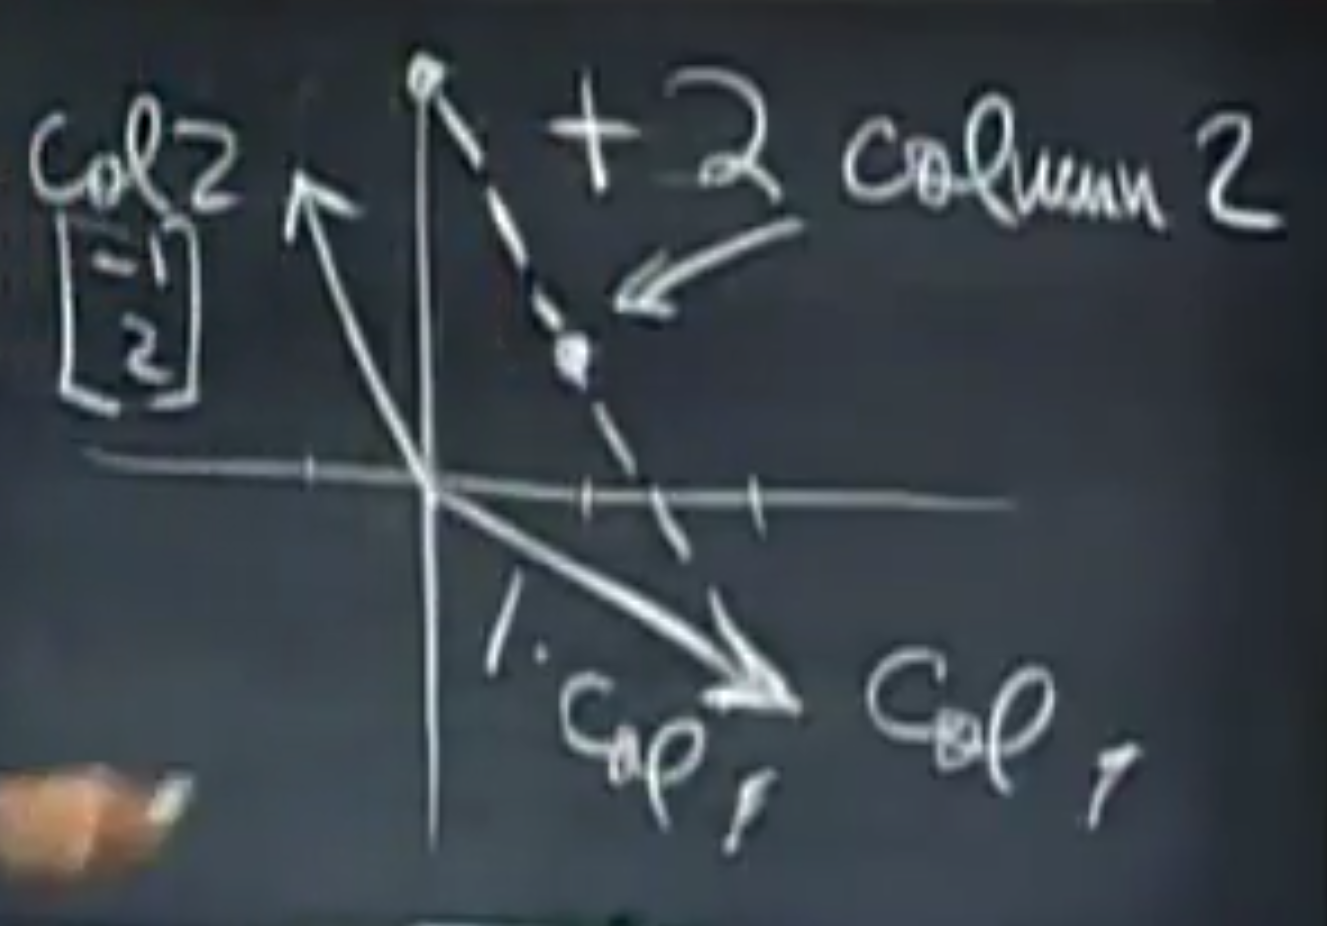 Col 2
-1
2
+ 2 column 2
1. Col 1
Col 1